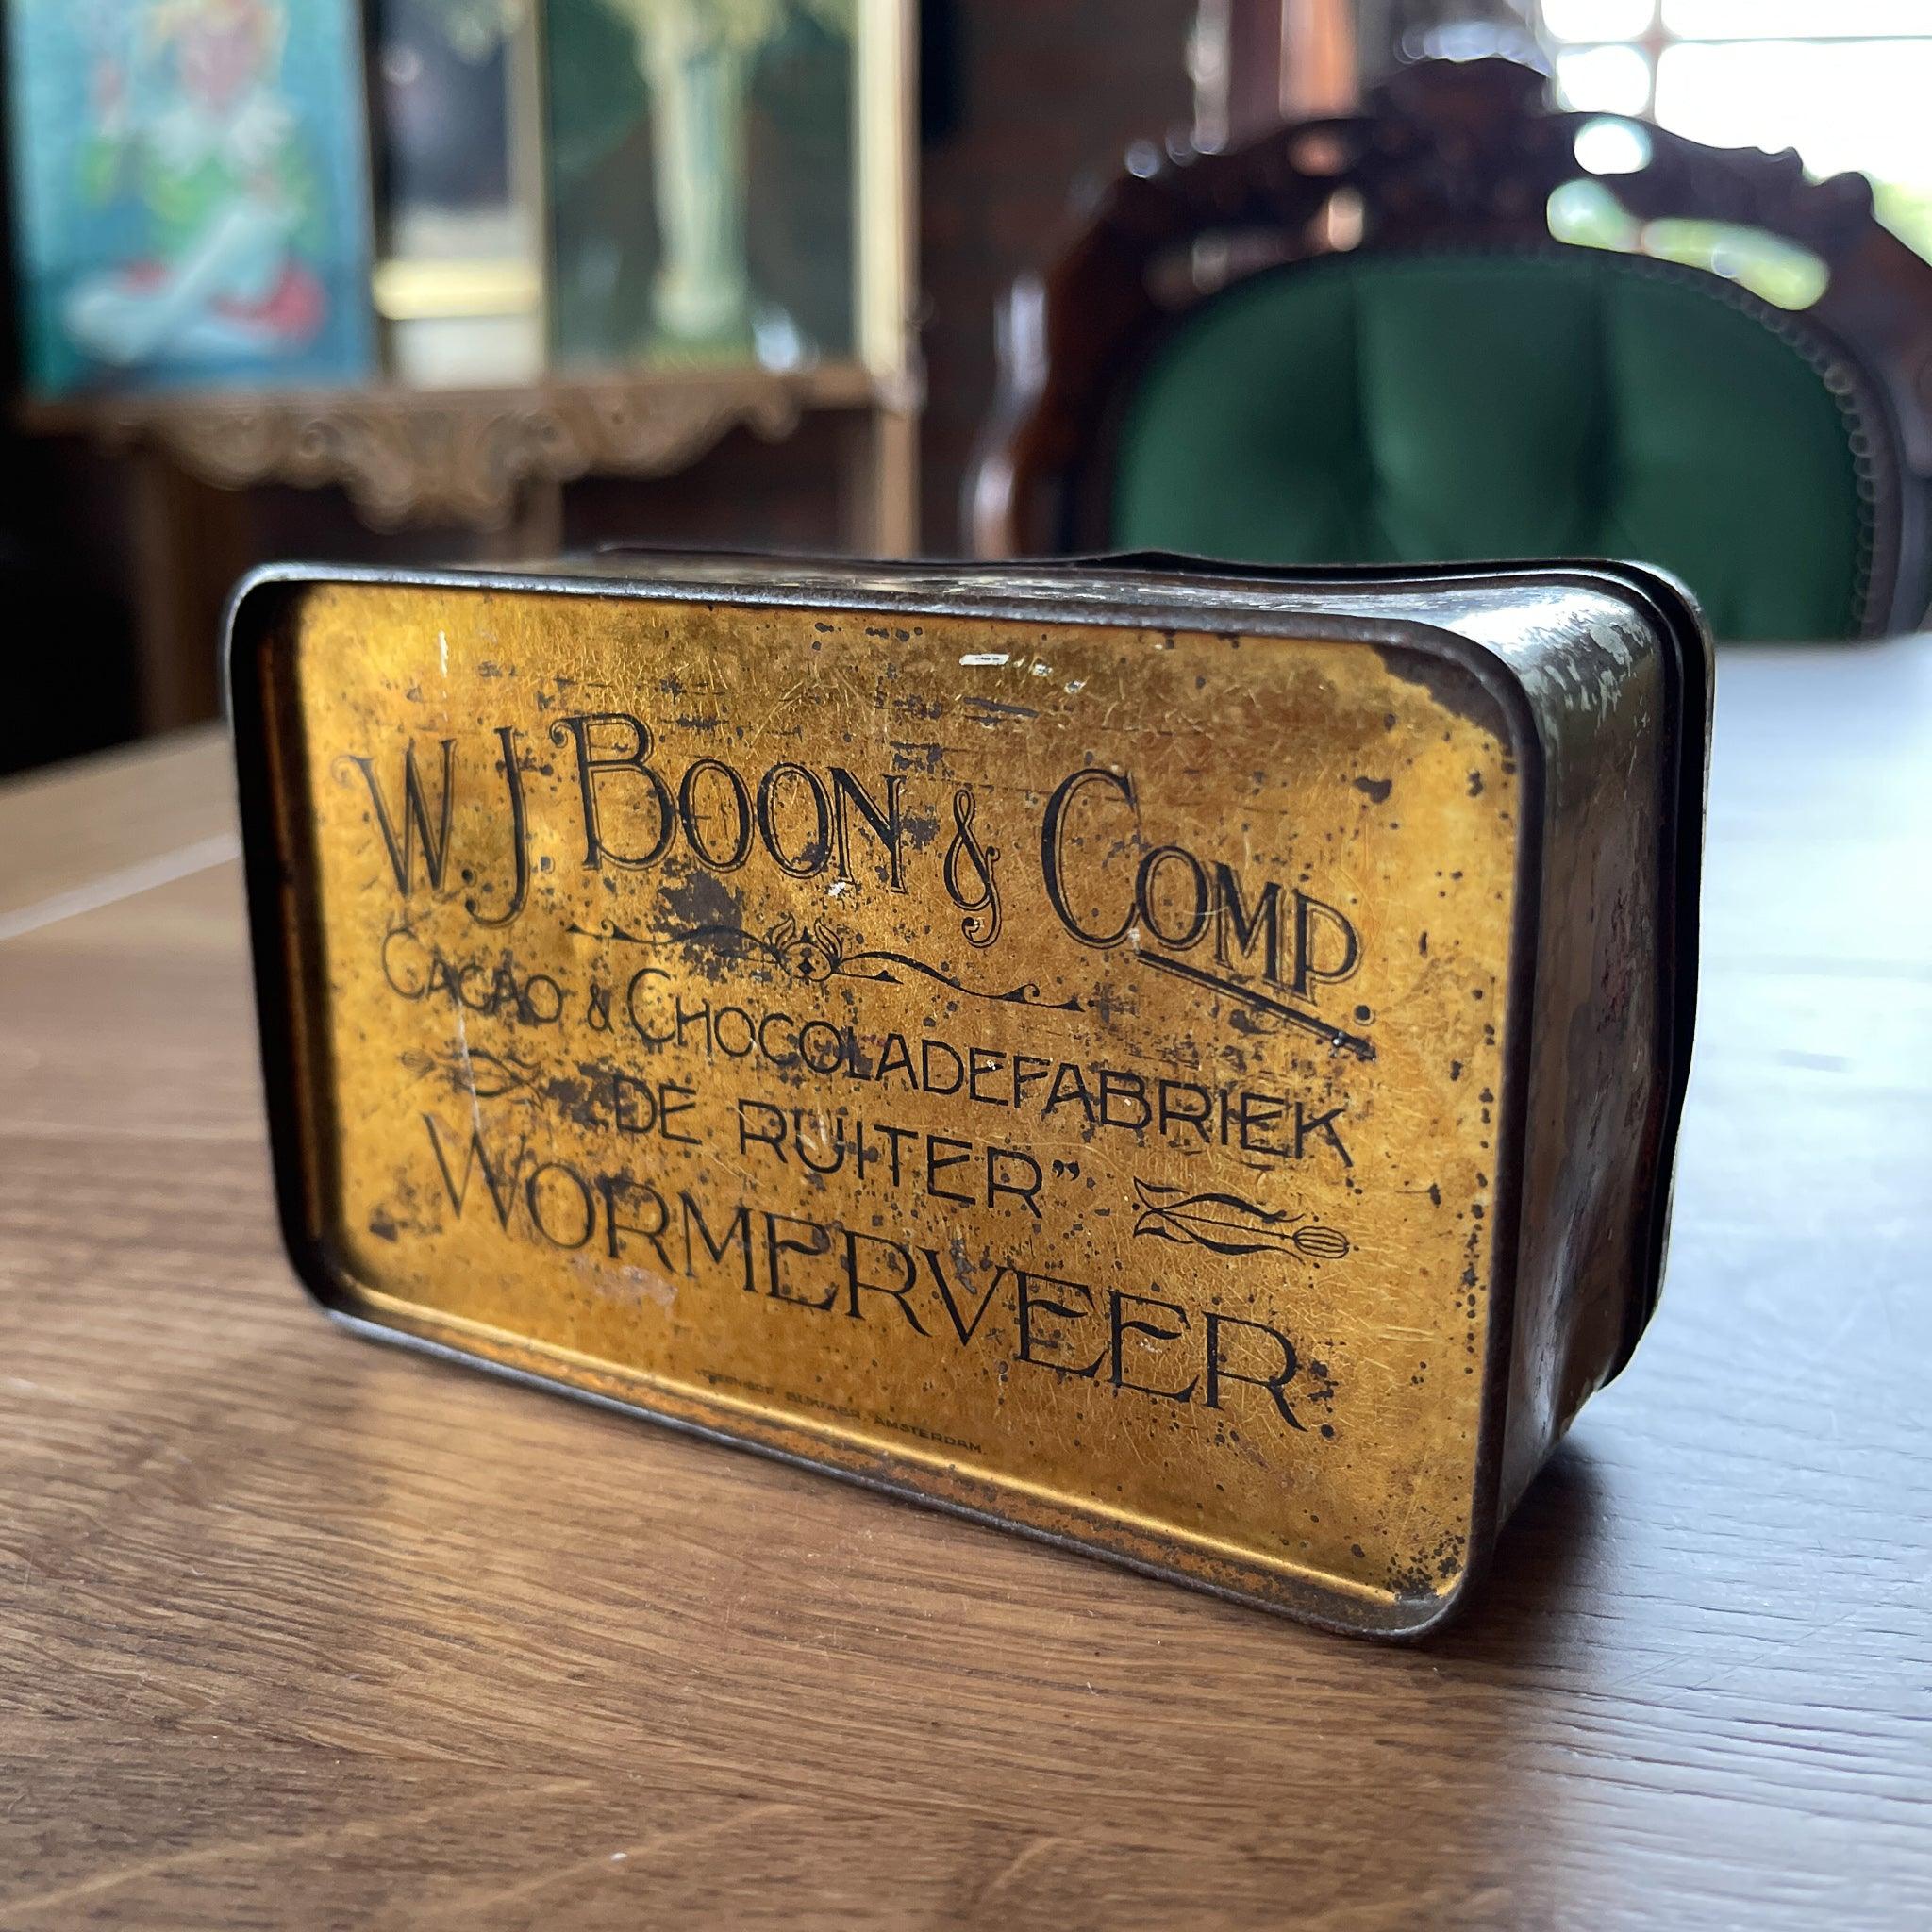 W.J. BOON & COMP.
CACAO & CHOCOLADEFABRIEK
DE RUITER”
WORMERVEER.
AMSTERDAM.